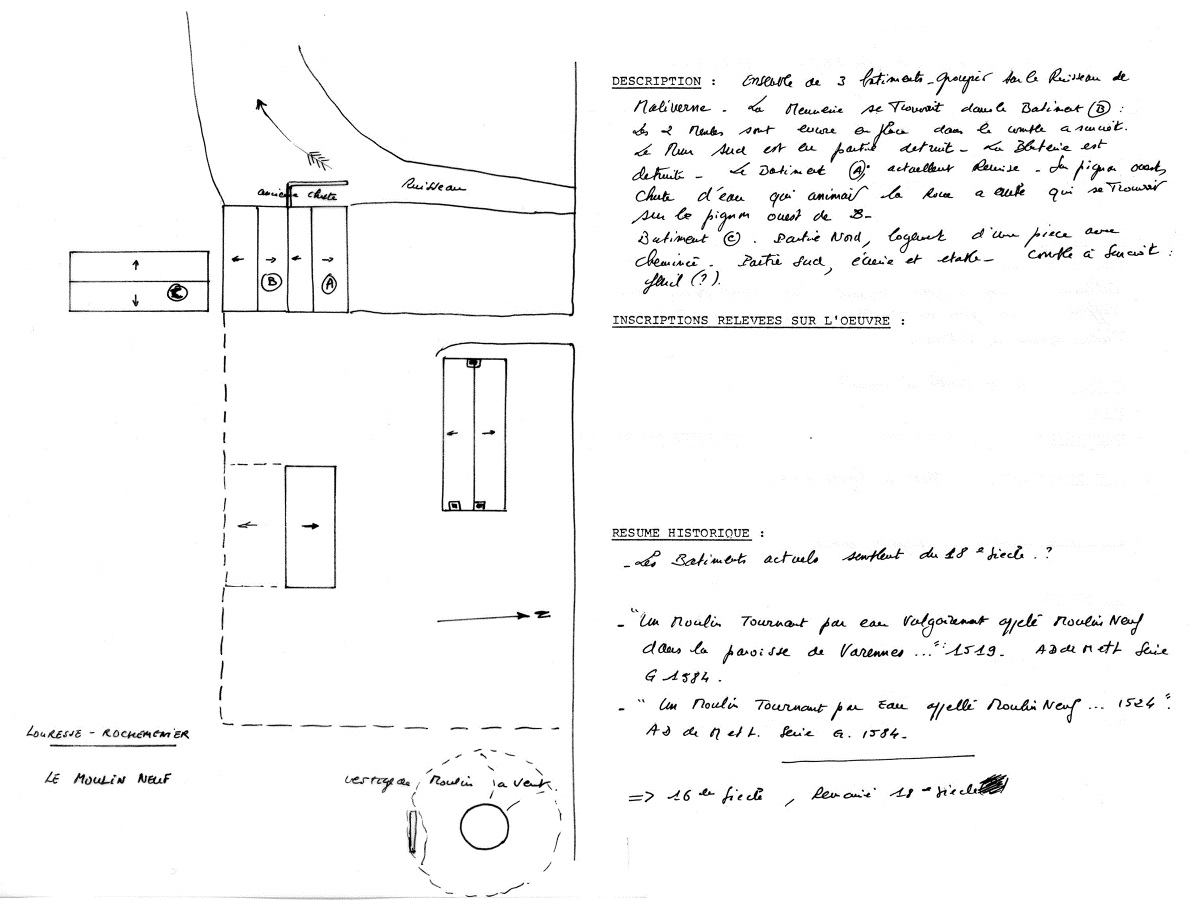 ancienne chute
Ruisseau
B
A
C
N
LOURESSE - ROCHEMENIER
LE MOULIN NEUF
vestige de Moulin a vent
DESCRIPTION : Ensemble de 3 batiments - groupés sur le Ruisseau de
Maliverne - La Meunerie se Trouvait dans le Batiment (B) :
Les 2 Meules sont encore en place dans le comble a surcroit.
Le Mur Sud est en partie detruit - La Bluterie est
detruite - Le Batiment (A), actuellent Remise - Son pignon ouest,
chute d'eau qui animait la Roue a aube qui se Trouvait
sur le pignon ouest de B-
Batiment (C). Partie Nord, logement d'une piece avec
cheminée - Partie Sud, écurie et etable - comble à surcroit :
fenil (?).
INSCRIPTIONS RELEVEES SUR L'OEUVRE :
RESUME HISTORIQUE :
- Les Batiments actuels semblent du 18e Siecle . ?
- "Un Moulin Tournant par eau Vulgairement appelé Moulin Neuf
dans la paroisse de Varennes ..." : 1519 - AD de M et L Serie
G 1584 .
- " Un Moulin Tournant par Eau appellé Moulin Neuf ... 1524 ".
AD de M et L. Serie G. 1584 -
=> 16 eme Siecle , Remanié 18 eme Siecle